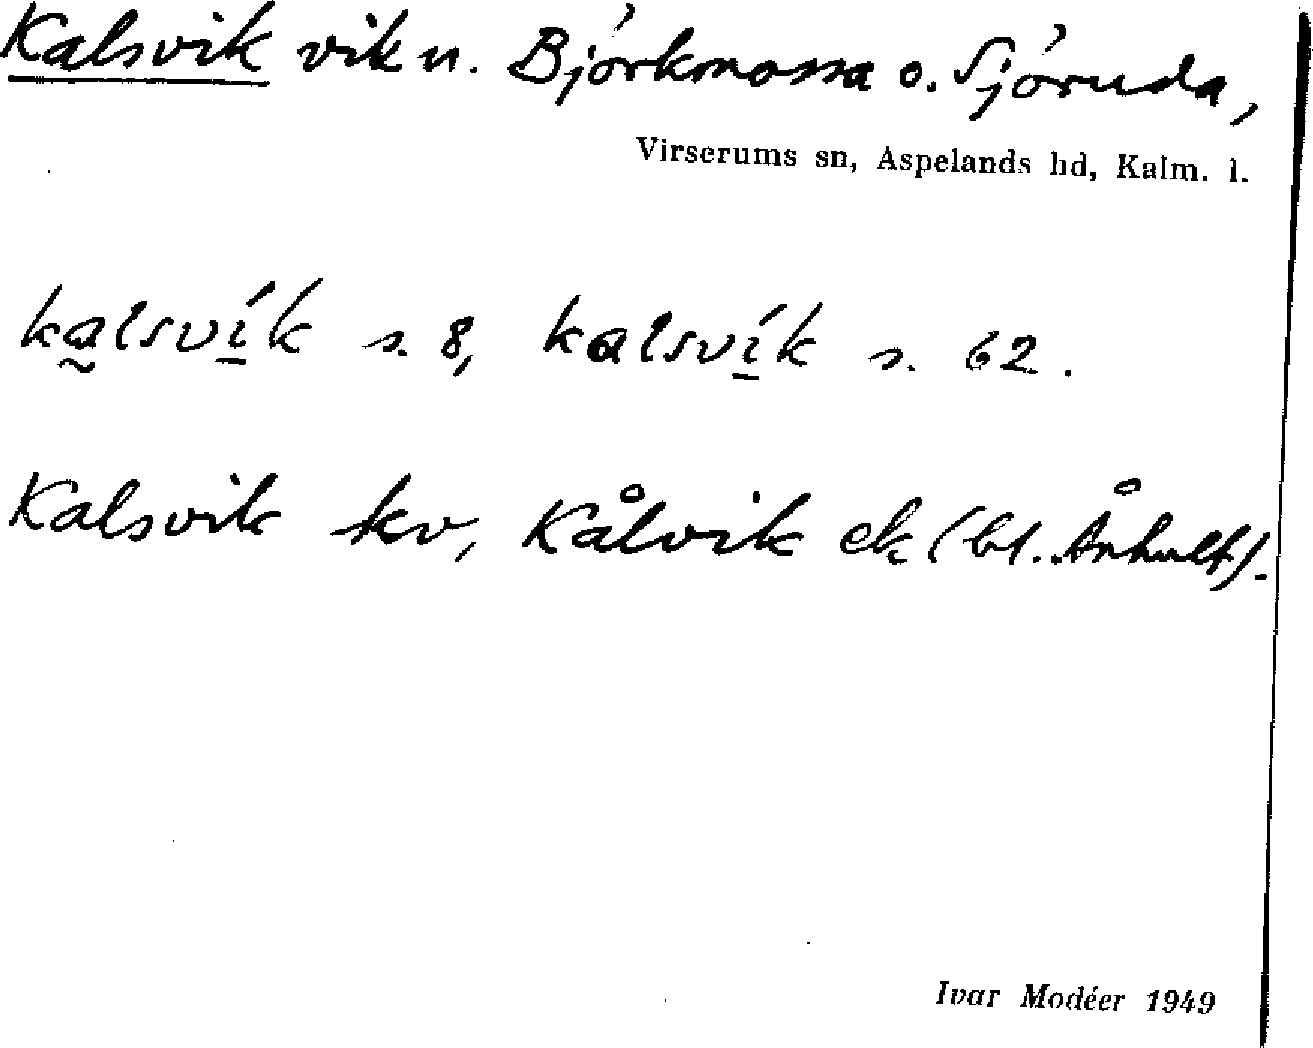 Kalsvik vik u. Björkmossa o. Sjöruda,
Virserums sn, Aspelands hd, Kalm. l.
kalsvík s. 8, kalsvík s. 62.
Kalsvik kv, Kålvik ek (bl. Århult).
Ivar Modéer 1949